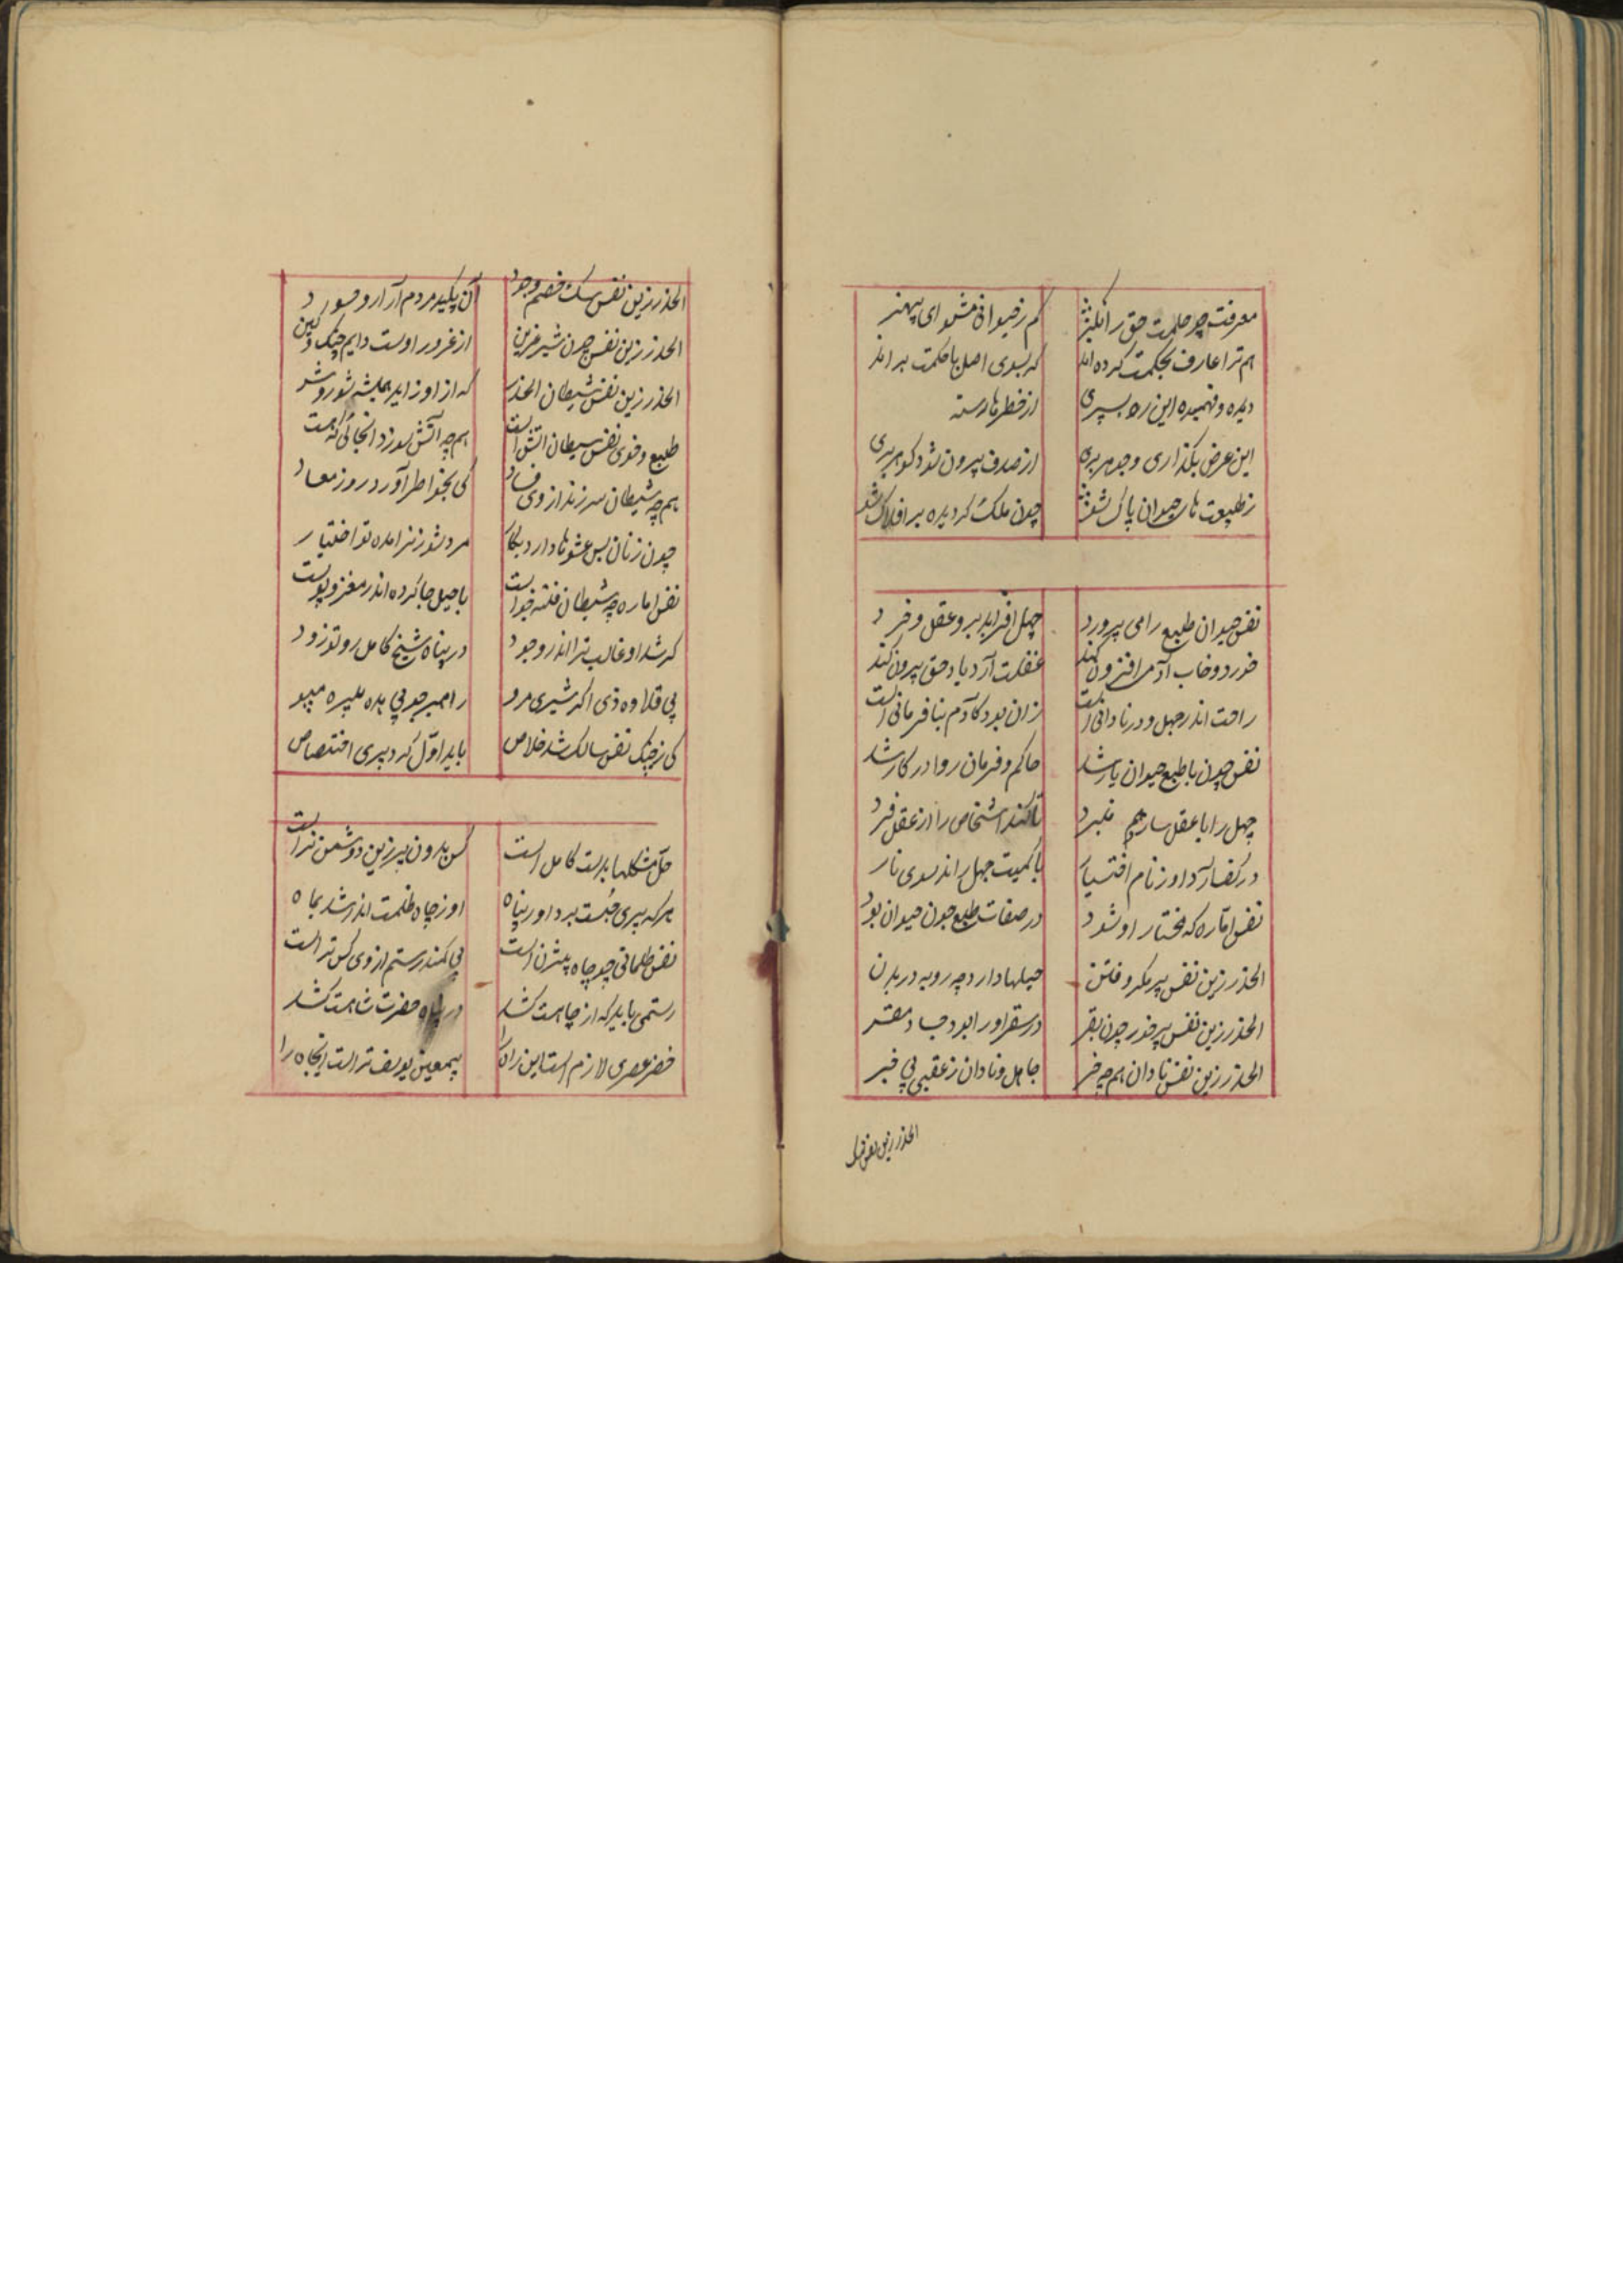 معرفت چو حکمت حق را
کم ز حیوانی مشو ای بیهنر
هم ترا عارف بحکمت کرده‌اند
که بسوی اصل با حکمت براند
دیده و فهمیده این ره بسپری
از خطرها رسته
این عرض بگذاری و جوهر بری
از صدف بیرون شود گوهر بری
ز طبیعت‌های حیوان پاک شو
چون ملک گردیده بر افلاک شو
نفس حیوان طبع را می پرورد
جهل افزاید برو عقل و خرد
خورد و خاب آدمی افزون کند
غفلت آرد یاد حق بیرون کند
راحت اندر جهل و در نادانی است
زان بود کادم بنافرمانی است
نفس چون با طبع حیوان یار شد
حاکم و فرمان روا در کار شد
جهل را با عقل سازد هم نبرد
تا کند اشخاص را از عقل فرد
در کف آرد او زمام اختیار
با کمیت جهل راند سوی نار
نفس اماره که مختار او شود
در صفات طبع چون حیوان بود
الحذر زین نفس پر مکر و فتن
حیلها دارد چه روبه در بدن
الحذر زین نفس پر خور چون بقر
در سقر او را بود جا و مقر
الحذر زین نفس نادان همچه خر
جاهل و نادان ز عقبی بی خبر
الحذر زین نفس
الحذر زین نفس سگ خصم وجود
آن پلید مردم آزار و حسود
الحذر زین نفس چون شیر عرین
از غرور اوست دایم جنگ و کین
الحذر زین نفس شیطان الحذر
که از او زاید همیشه شور و شر
طبع و خوی نفس شیطان آتش است
همچه آتش سوزد آنجائی که هست
همچه شیطان سر زند از وی فساد
کی بخواطر آورد روز معاد
چون زنان بس عشوها دارد بکار
مرد شو زن را مده تو اختیار
نفس اماره چه شیطان فتنه خواست
با حیل جا کرده اندر مغز و پوست
گر شد او غالب ترا اندر وجود
در پناه شیخ کامل رو تو زود
بی قلاوه ذی اگر شیری مرو
راهبر جو بی
کی ز جنگ نفس سالک شد خلاص
باید اول کرد پیری اختصاص
حل مشکلها بدست کامل است
کس بدون پیر زین دو شمن نرست
هر که پیری جست برد او را پناه
او ز چاه ظلمت اندر شد بماه
نفس ظلمانی چو چاه بیژن است
بی کمند رستم از وی کس نرست
رستمی باید که از چاهت کشد
در پناه حضرت شاهت کشد
خضر عصری لازم است این راه را
بیمعین یوسف نرست اینچاه را